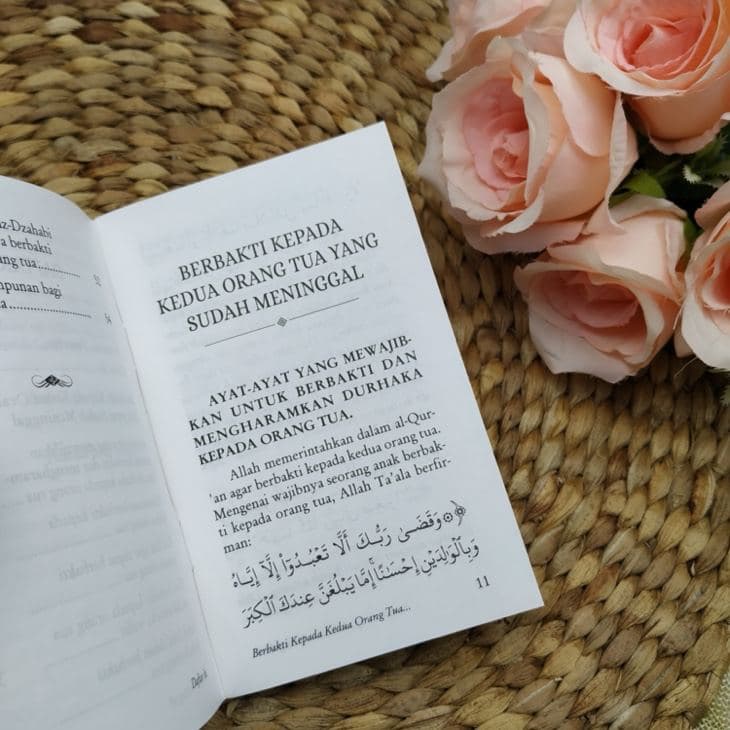 az-Dzahabi
a berbakti
ang tua
npunan bagi
a
BERBAKTI KEPADA
KEDUA ORANG TUA YANG
SUDAH MENINGGAL
AYAT-AYAT YANG MEWAJIB-
KAN UNTUK BERBAKTI DAN
MENGHARAMKAN DURHAKA
KEPADA ORANG TUA.
Allah memerintahkan dalam al-Qur-
'an agar berbakti kepada kedua orang tua.
Mengenai wajibnya seorang anak berbak-
ti kepada orang tua, Allah Ta'ala berfir-
man:
﴿۞ وَقَضَىٰ رَبُّكَ أَلَّا تَعْبُدُوٓا۟ إِلَّآ إِيَّاهُ
وَبِٱلْوَٰلِدَيْنِ إِحْسَٰنًا ۚ إِمَّا يَبْلُغَنَّ عِندَكَ ٱلْكِبَرَ
11
Berbakti Kepada Kedua Orang Tua...